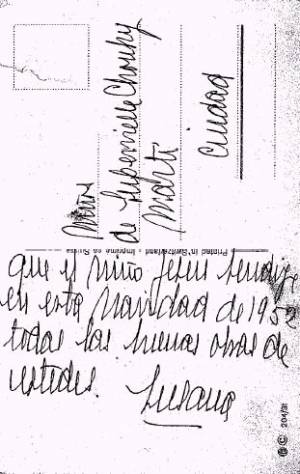 que el niño Jesus bendiga
en esta Navidad de 1952
todas las buenas obras de
ustedes.
Susana
de
Marti
Ciudad
Printed in Switzerland Imprimé en Suisse